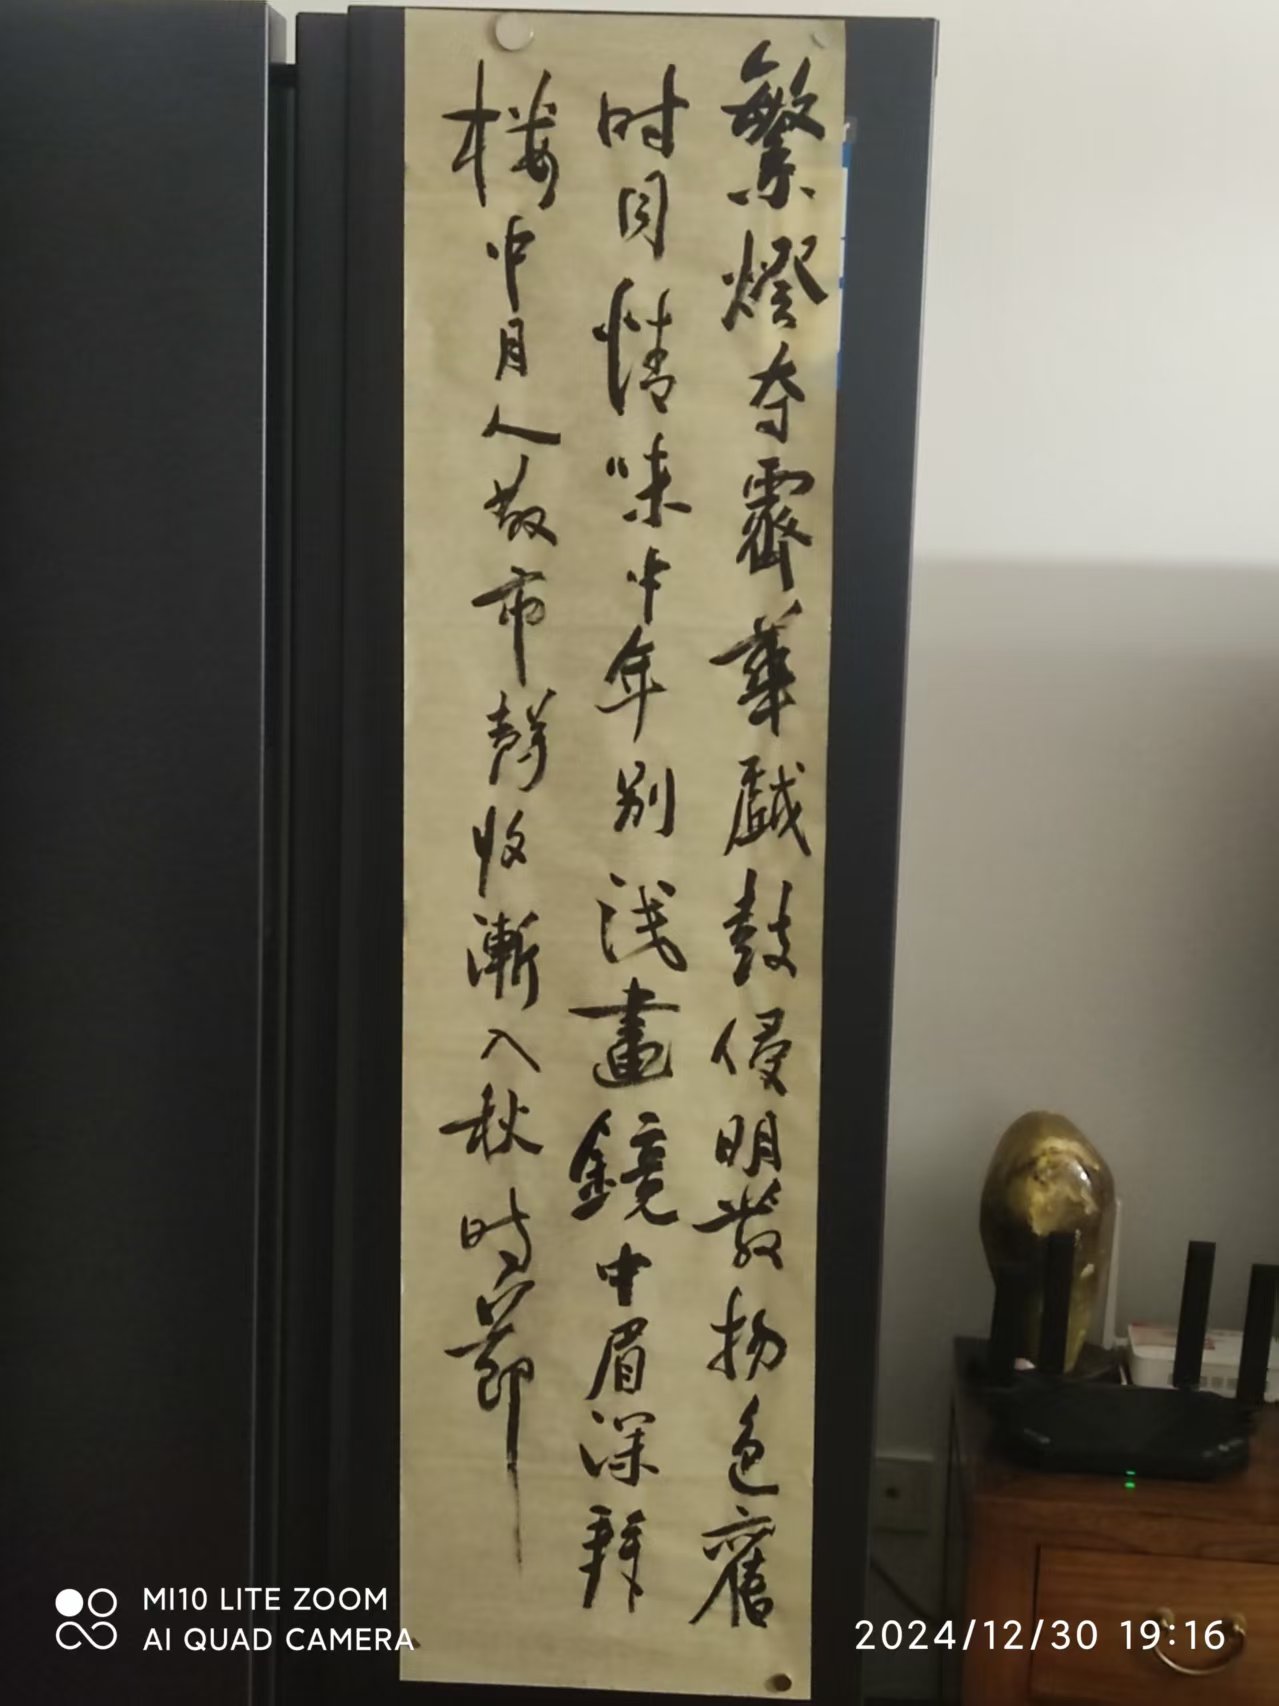 繁燈夺霽華戯鼓侵明發物色舊
时同情味中年别浅畫鏡中眉深拜
楼中月人散市聲收漸入秋时節
MI10 LITE ZOOM
AI QUAD CAMERA
2024/12/30 19:16